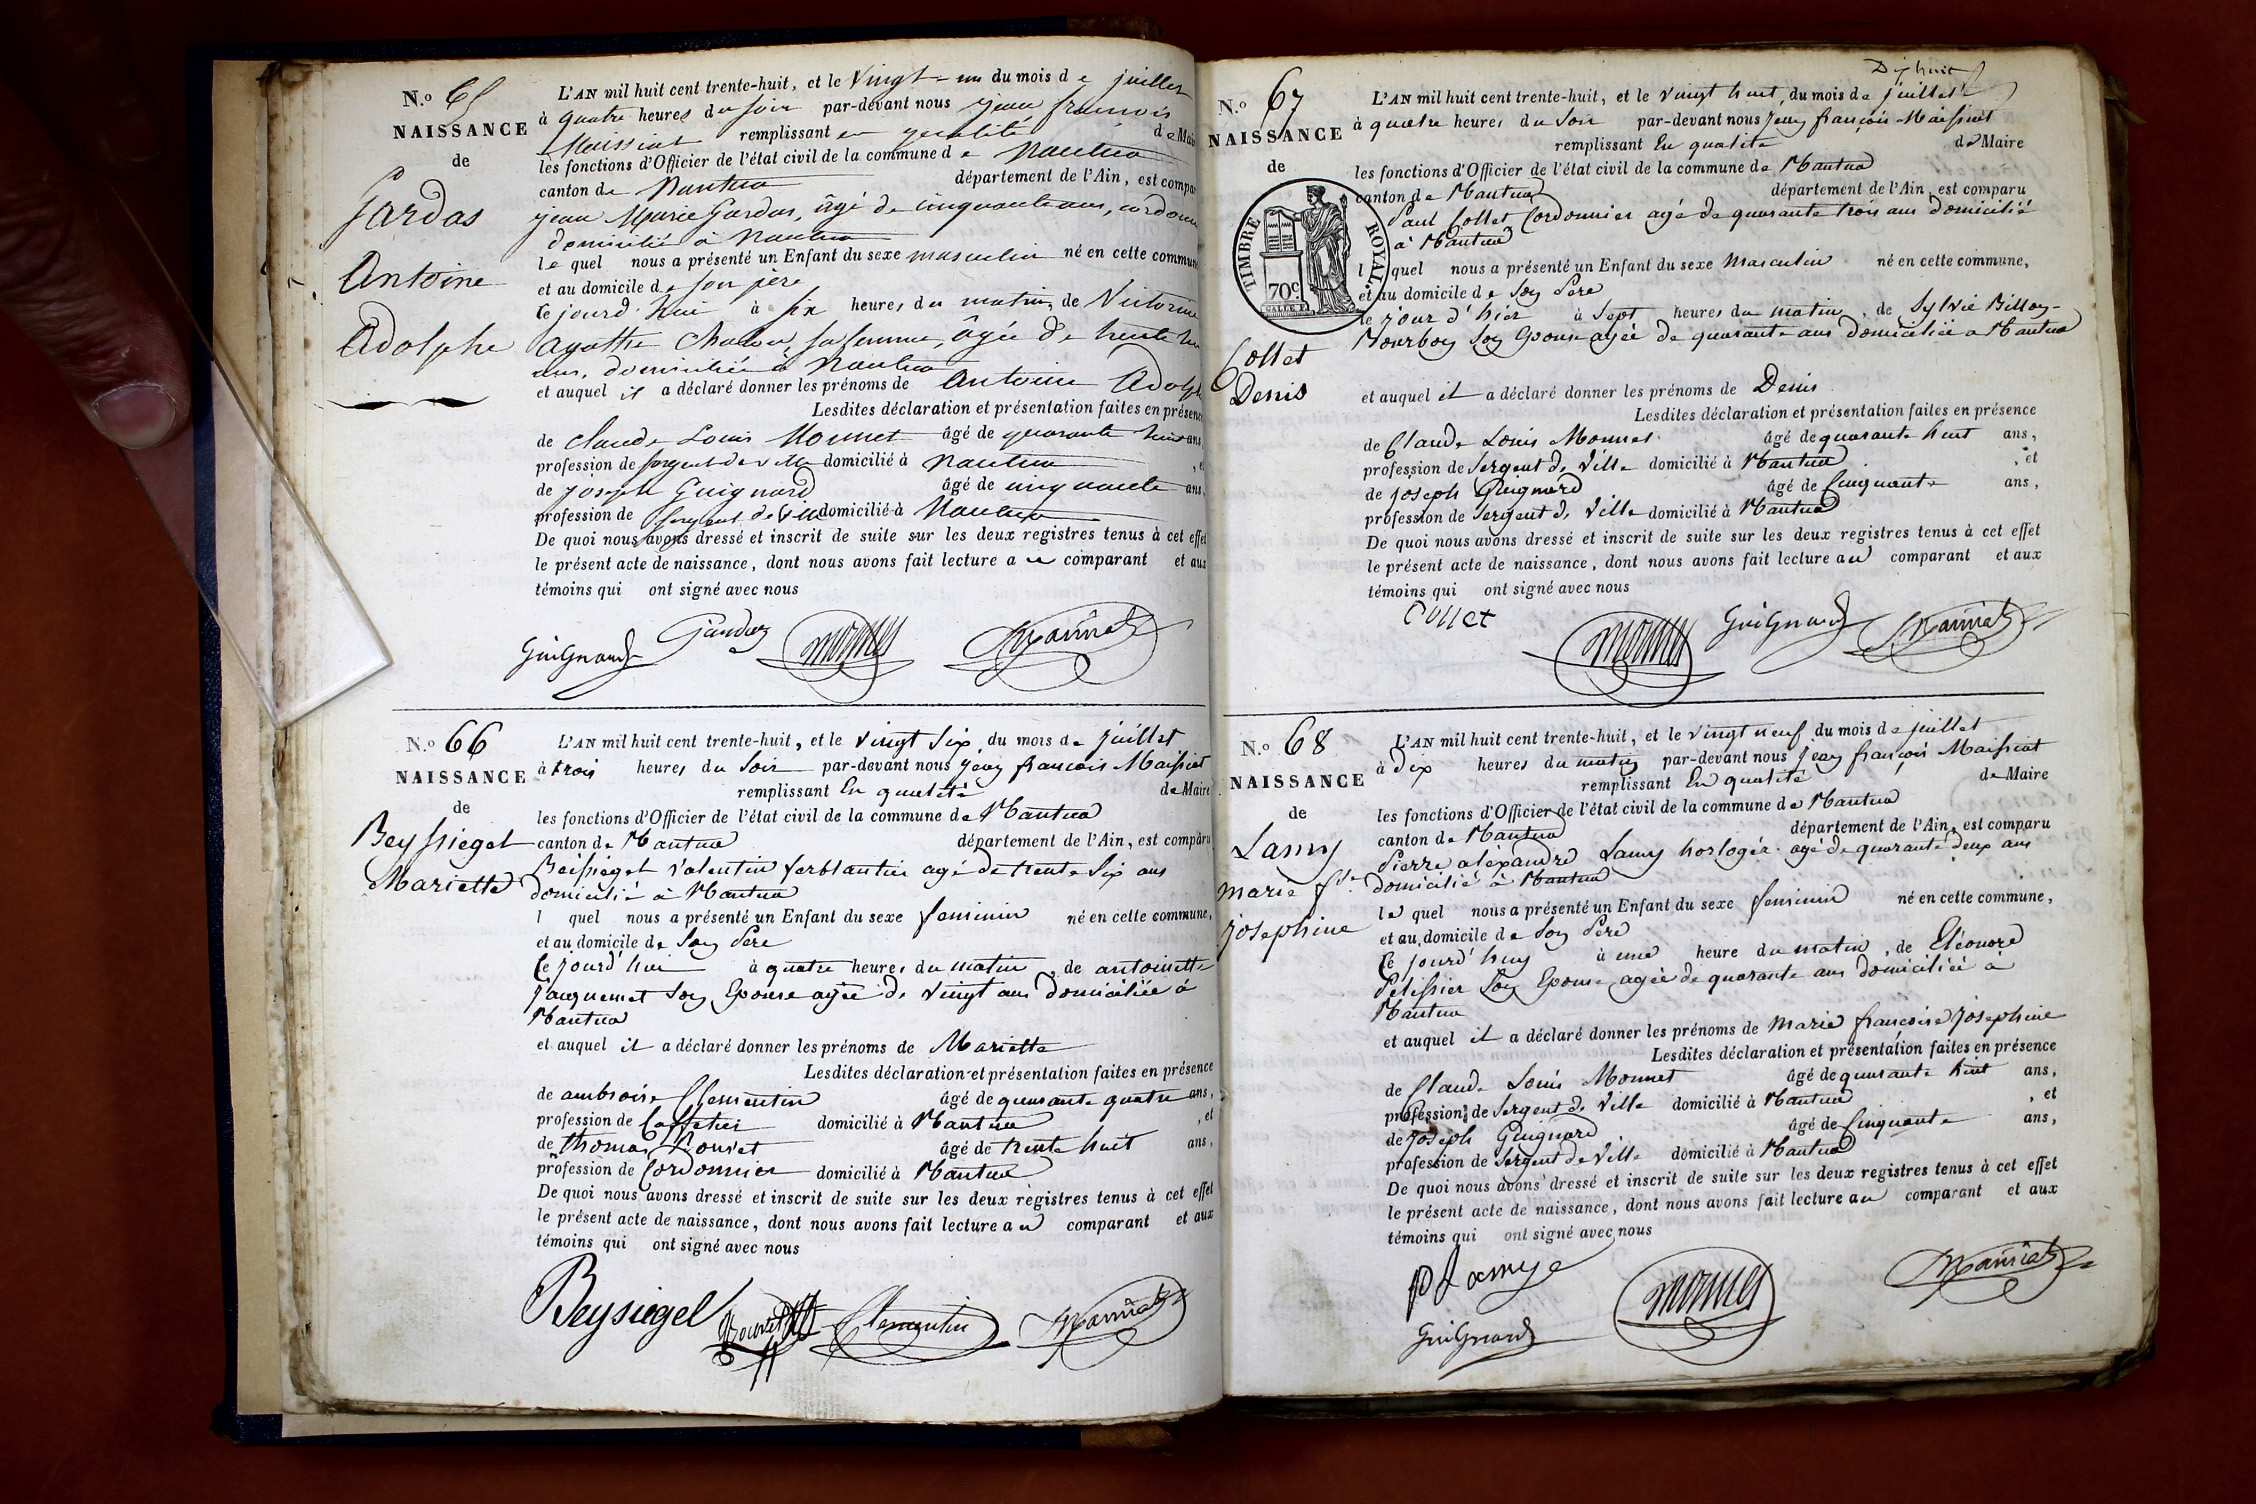 N.o 65
NAISSANCE
de
Gardas
Antoine
Adolphe
L'AN mil huit cent trente-huit, et le Vingt-un du mois de juillet
à quatre heures du soir par-devant nous jean francois
Maissiat remplissant en qualité de Mair
les fonctions d'Officier de l'état civil de la commune de Nantua
canton de Nantua département de l'Ain, est compar
jean Marie Gardas, âgé de cinquante ans, cordonn
domicilié à Nantua
le quel nous a présenté un Enfant du sexe masculin né en cette commune
et au domicile de son père
ce jourd'hui à six heures du matin, de Victorine
agathe sa femme, âgée de trente
ans, domiciliée à Nantua
et auquel il a déclaré donner les prénoms de Antoine Adolph
Lesdites déclaration et présentation faites en présence
de Claude Louis Monnet âgé de quarante huit ans
profession de sergent de ville domicilié à Nantua , et
de joseph Guignard âgé de cinquante ans,
profession de sergent de ville domicilié à Nantua
De quoi nous avons dressé et inscrit de suite sur les deux registres tenus à cet effet
le présent acte de naissance, dont nous avons fait lecture au comparant et aux
témoins qui ont signé avec nous
Guignard Gardas Monnet Maissiat
N.o 66
NAISSANCE
de
Beyssiegel
Mariette
L'AN mil huit cent trente-huit, et le vingt six, du mois de juillet
à trois heures du Soir par-devant nous jean francois Maissiat
remplissant En qualité de Maire
les fonctions d'Officier de l'état civil de la commune de Nantua
canton de Nantua département de l'Ain, est comparu
Beissiegel Valentin ferblantier agé de trente Six ans
domicilié à Nantua
l quel nous a présenté un Enfant du sexe feminin né en cette commune,
et au domicile de Son Père
Ce jourd'hui à quatre heures du matin, de antoinette
Jacquemet Son Epouse agée de vingt ans domiciliée à
Nantua
et auquel il a déclaré donner les prénoms de Mariette
Lesdites déclaration et présentation faites en présence
de ambroise Clementin âgé de quarante quatre ans,
profession de Caffetier domicilié à Nantua , et
de thomas âgé de trente huit ans,
profession de Cordonnier domicilié à Nantua
De quoi nous avons dressé et inscrit de suite sur les deux registres tenus à cet effet
le présent acte de naissance, dont nous avons fait lecture au comparant et aux
témoins qui ont signé avec nous
Beysiegel Clementin Maissiat
Dix huit
N.o 67
NAISSANCE
de
TIMBRE ROYAL
70c
Collet
Denis
L'AN mil huit cent trente-huit, et le vingt huit, du mois de juillet
à quatre heures du Soir par-devant nous Jean françois Maissiat
remplissant En qualité de Maire
les fonctions d'Officier de l'état civil de la commune de Nantua
canton de Nantua département de l'Ain, est comparu
Paul Collet Cordonnier agé de quarante trois ans domicilié
à Nantua
l quel nous a présenté un Enfant du sexe Masculin né en cette commune,
et au domicile de Son Père
le jour d'hier à Sept heures du matin, de Sylvie Billon-
Bourbon Son Epouse agée de quarante ans domiciliée a Nantua
et auquel il a déclaré donner les prénoms de Denis
Lesdites déclaration et présentation faites en présence
de Claude Louis Monnet âgé de quarante huit ans,
profession de Sergent de Ville domicilié à Nantua , et
de joseph Guignard âgé de Cinquante ans,
profession de Sergent de Ville domicilié à Nantua
De quoi nous avons dressé et inscrit de suite sur les deux registres tenus à cet effet
le présent acte de naissance, dont nous avons fait lecture au comparant et aux
témoins qui ont signé avec nous
Collet Monnet Guignard Maissiat
N.o 68
NAISSANCE
de
Lamy
marie fse
josephine
L'AN mil huit cent trente-huit, et le vingt neuf du mois de juillet
à dix heures du matin par-devant nous Jean françois Maissiat
remplissant En qualité de Maire
les fonctions d'Officier de l'état civil de la commune de Nantua
canton de Nantua département de l'Ain, est comparu
Pierre aléxandre Lamy horloger agé de quarante deux ans
domicilié à Nantua
le quel nous a présenté un Enfant du sexe feminin né en cette commune,
et au domicile de Son Père
Ce jourd'huy à une heure du matin, de Eléonore
Pelissier Son Epouse agée de quarante ans domiciliée à
Nantua
et auquel il a déclaré donner les prénoms de Marie françoise josephine
Lesdites déclaration et présentation faites en présence
de Claude Louis Monnet âgé de quarante huit ans,
profession de Sergent de Ville domicilié à Nantua , et
de Joseph Guignard âgé de Cinquante ans,
profession de Sergent de Ville domicilié à Nantua
De quoi nous avons dressé et inscrit de suite sur les deux registres tenus à cet effet
le présent acte de naissance, dont nous avons fait lecture au comparant et aux
témoins qui ont signé avec nous
P Lamy Monnet Maissiat
Guignard